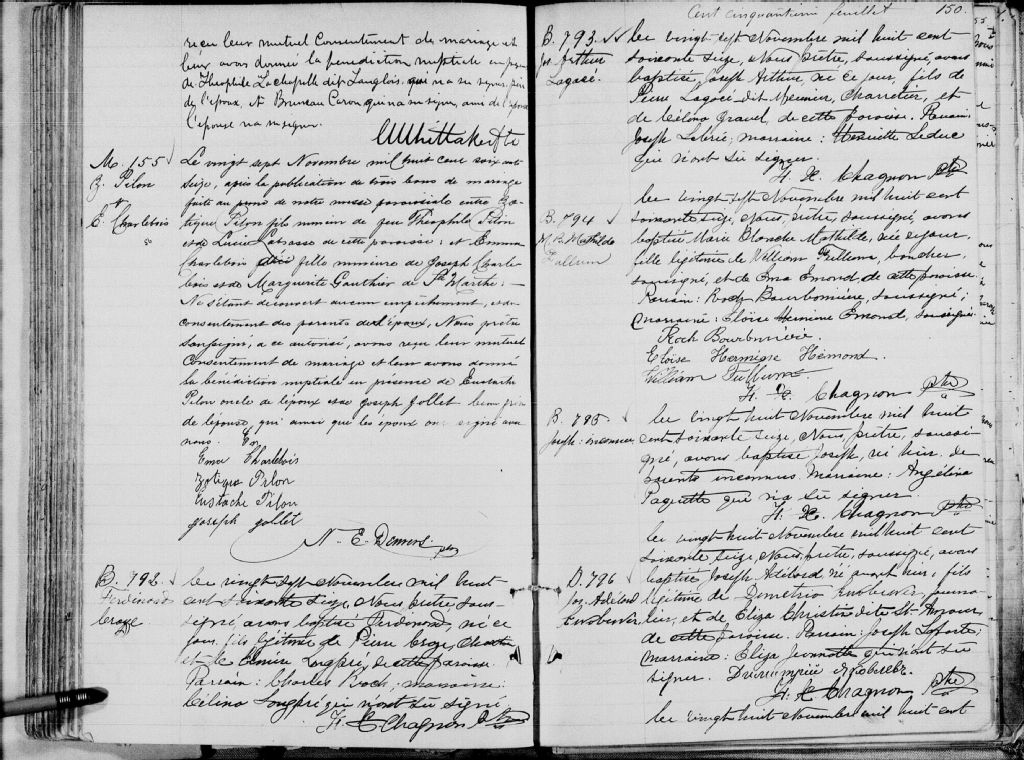 reçu leur mutuel Consentement de mariage et
leur avons donné la bénédiction nuptiale en
de Théophile Lachapelle dit Langlois qui n'a su signer
de l'époux, et Bruneau Caron qui n'a su signer, ami de l'épouse
l'épouse n'a su signer.
Whittaker Ptre
M. 155
Z. Pilon
&
E. Charlebois
Le vingt sept Novembre mil huit cent soixante
seize, après la publication de trois bans de mariage
faite au prône de notre messe paroissiale entre Zo-
tique Pilon fils mineur de feu Théophile Pilon
et de Lucie de cette paroisse; et Emma
Charlebois fille mineure de Joseph Charle
bois et de Marguerite Gauthier de Ste Marthe;
Ne s'étant découvert aucun empêchement, et du
consentement des parents de l'époux, Nous prêtre
soussigné, a ce autorisé, avons reçu leur mutuel
Consentement de mariage et leur avons donné
la bénédiction nuptiale en présence de Eustache
Pilon oncle de l'époux et de Joseph Jollet
de l'épouse, qui ainsi que les époux ont signé avec
nous.
Ema Charlebois
Zotique Pilon
Eustache Pilon
Joseph Jollet
N. E. Demers ptre
B. 792
Ferdinand
Croze
Le vingt sept Novembre mil huit
cent soixante seize, Nous, prêtre, sous-
signé, avons baptisé Ferdinand, né ce
jour, fils légitime de Pierre Croze,
et de Elmire Longpré, de cette paroisse.
Parrain: Charles Roch, marraine:
Célina Longpré qui n'ont su signé
F. X. Chagnon Ptre
Cent cinquantième feuillet 150.
B. 793
Jos. Arthur
Lagacé
Le vingt sept Novembre mil huit cent
soixante seize, Nous, prêtre, soussigné, avons
baptisé, Joseph Arthur, né ce jour, fils de
Pierre Lagacé dit Meunier, Charretier, et
de Célina Gravel, de cette paroisse. Parrain:
Joseph Labrie; marraine: Henriette Leduc
qui n'ont su signer.
F. X. Chagnon Ptre
B. 794
M. B. Mathilde
Fullum
Le vingt sept Novembre mil huit cent
soixante seize, Nous, prêtre, soussigné, avons
baptisé Marie Blanche Mathilde, née ce jour,
fille légitime de William Fullum, boucher,
soussigné, et de Ema Emond, de cette paroisse.
Parrain: Roch Bourbonnière, soussigné;
marraine: Eloïse Hermine Emond, soussignée
Roch Bourbonnière.
Eloïse Hermine Hémond.
William Fullum
F. X. Chagnon Ptre
B. 795
Joseph: inconnu
Le vingt huit Novembre mil huit
cent soixante seize, Nous, prêtre, soussi-
gné, avons baptisé Joseph, né hier, de
parents inconnus. Marraine: Angélina
Paquette qui n'a su signer.
F. X. Chagnon Ptre
B. 796
Jos. Adélard
Le vingt huit Novembre mil huit cent
soixante seize, Nous, prêtre, soussigné, avons
baptisé Joseph Adélard, né avant hier, fils
légitime de Demetrio
et de Eliza Christin dite St Amour
de cette paroisse. Parrain: Joseph Laporte;
marraine: Eliza Jeannotte qui n'ont su
signer.
F. X. Chagnon Ptre
Le vingt huit Novembre mil huit cent